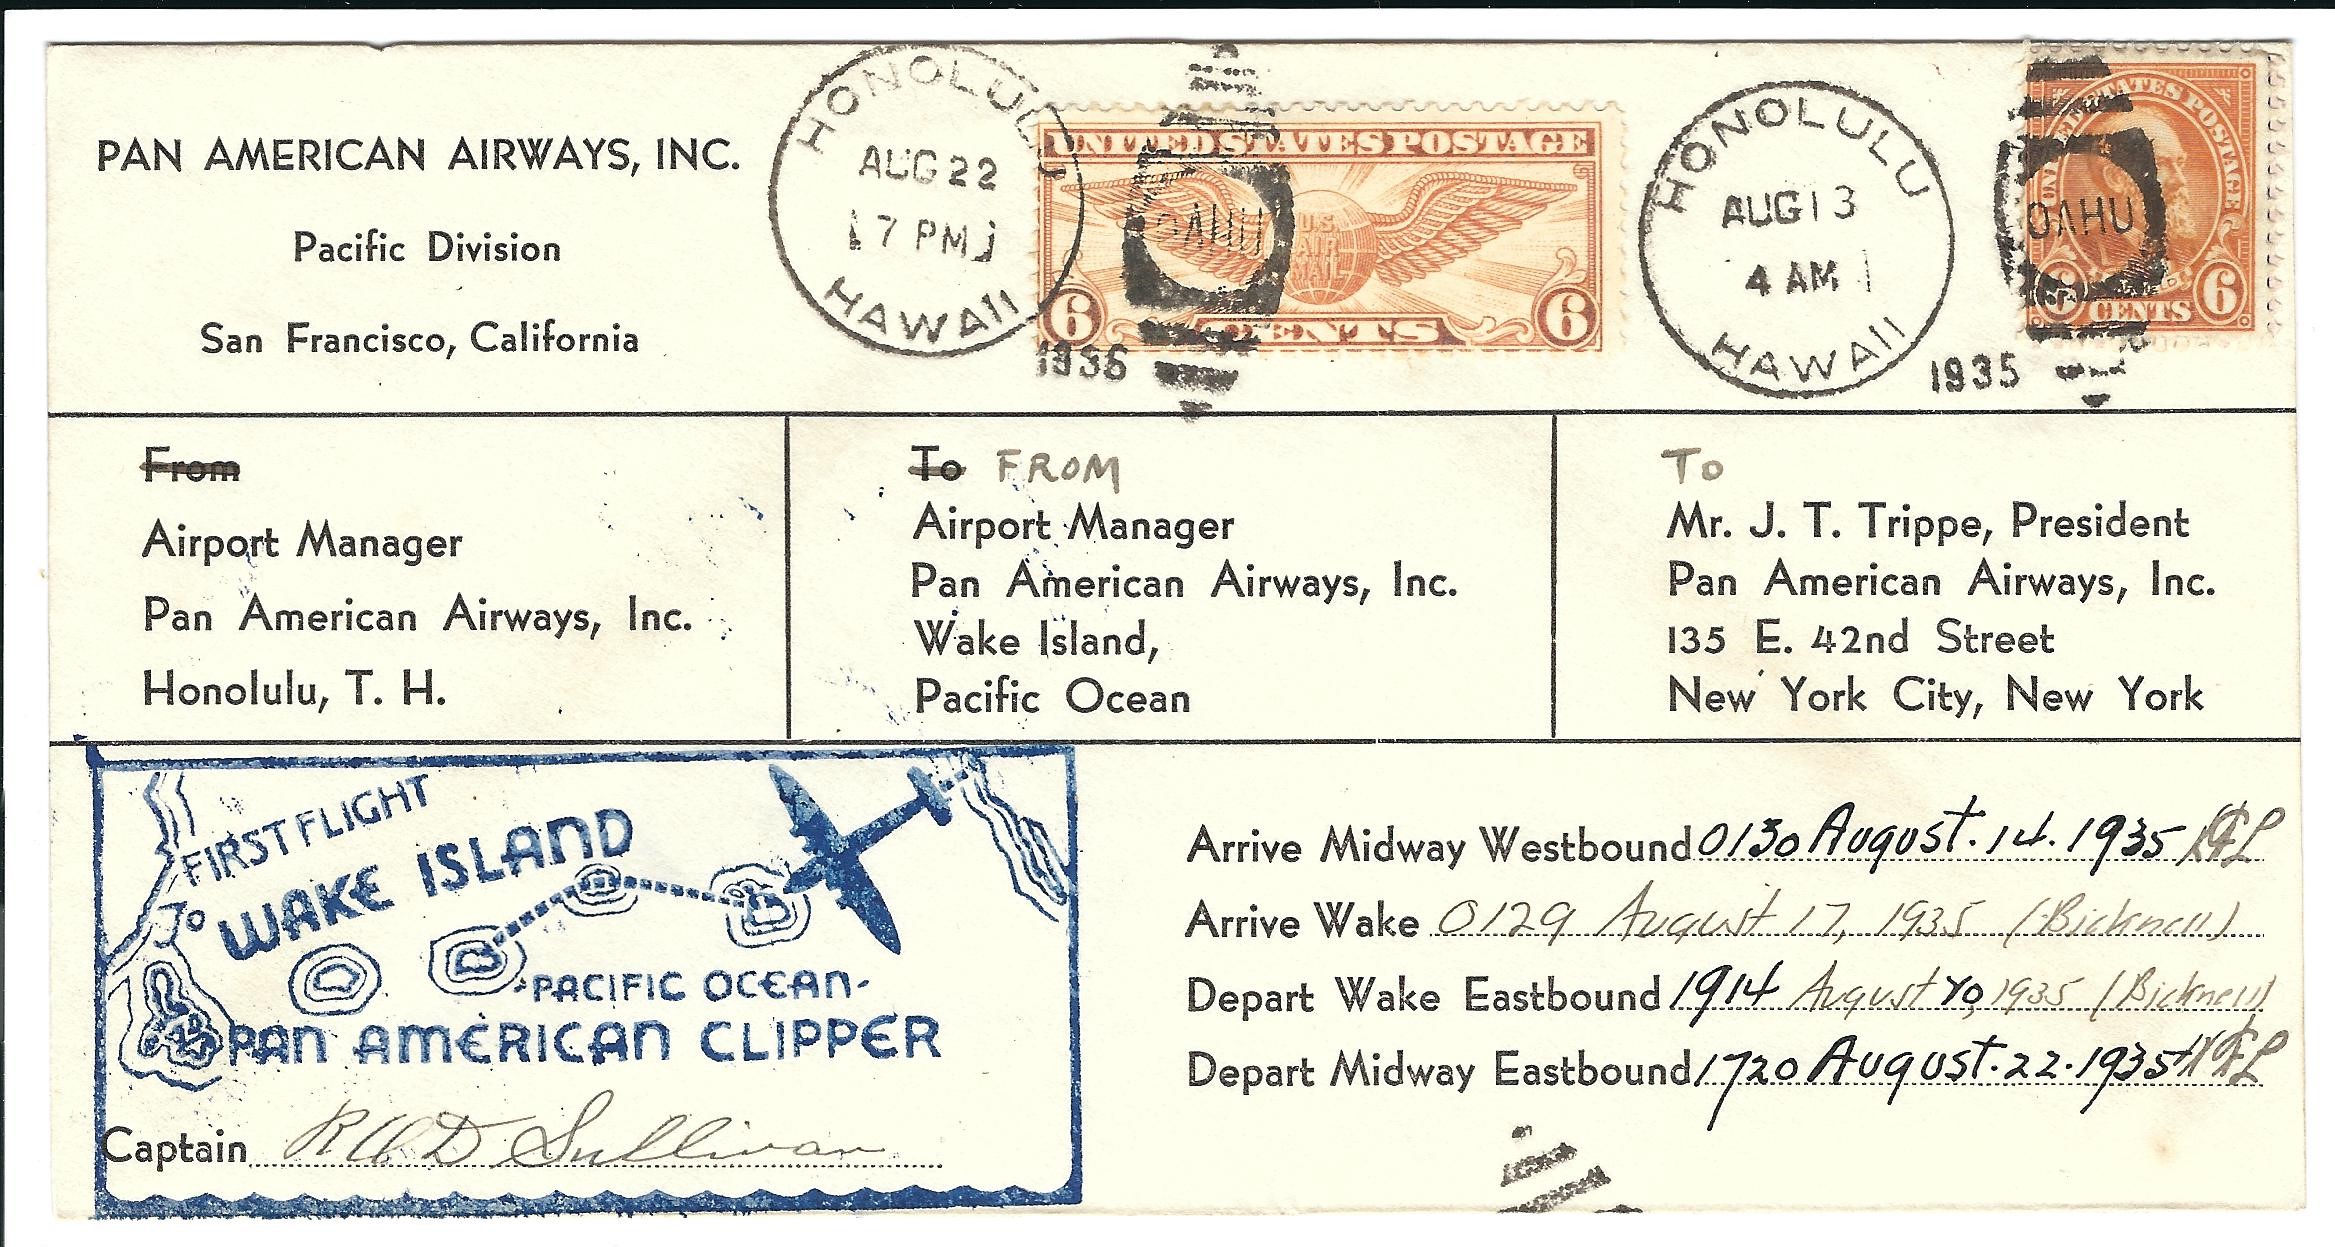 PAN AMERICAN AIRWAYS, INC.
Pacific Division
San Francisco, California
HONOLULU
AUG 22
7 PM
HAWAII
1936
UNITED STATES POSTAGE
U.S.
AIR
MAIL
6 CENTS 6
OAHU
HONOLULU
AUG 13
4 AM
HAWAII
1935
UNITED STATES POSTAGE
OAHU
6 CENTS 6
From
Airport Manager
Pan American Airways, Inc.
Honolulu, T. H.
To FROM
Airport Manager
Pan American Airways, Inc.
Wake Island,
Pacific Ocean
To
Mr. J. T. Trippe, President
Pan American Airways, Inc.
135 E. 42nd Street
New York City, New York
FIRST FLIGHT
TO WAKE ISLAND
PACIFIC OCEAN-
PAN AMERICAN CLIPPER
Captain R O D Sullivan
Arrive Midway Westbound 0130 August. 14. 1935
Arrive Wake 0129 August 17, 1935 (Bicknell)
Depart Wake Eastbound 1914 August 20, 1935 (Bicknell)
Depart Midway Eastbound 1720 August. 22. 1935